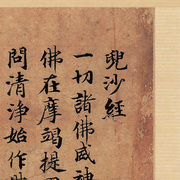 兜沙經
一切諸佛威神
佛在摩竭提
問清淨始作